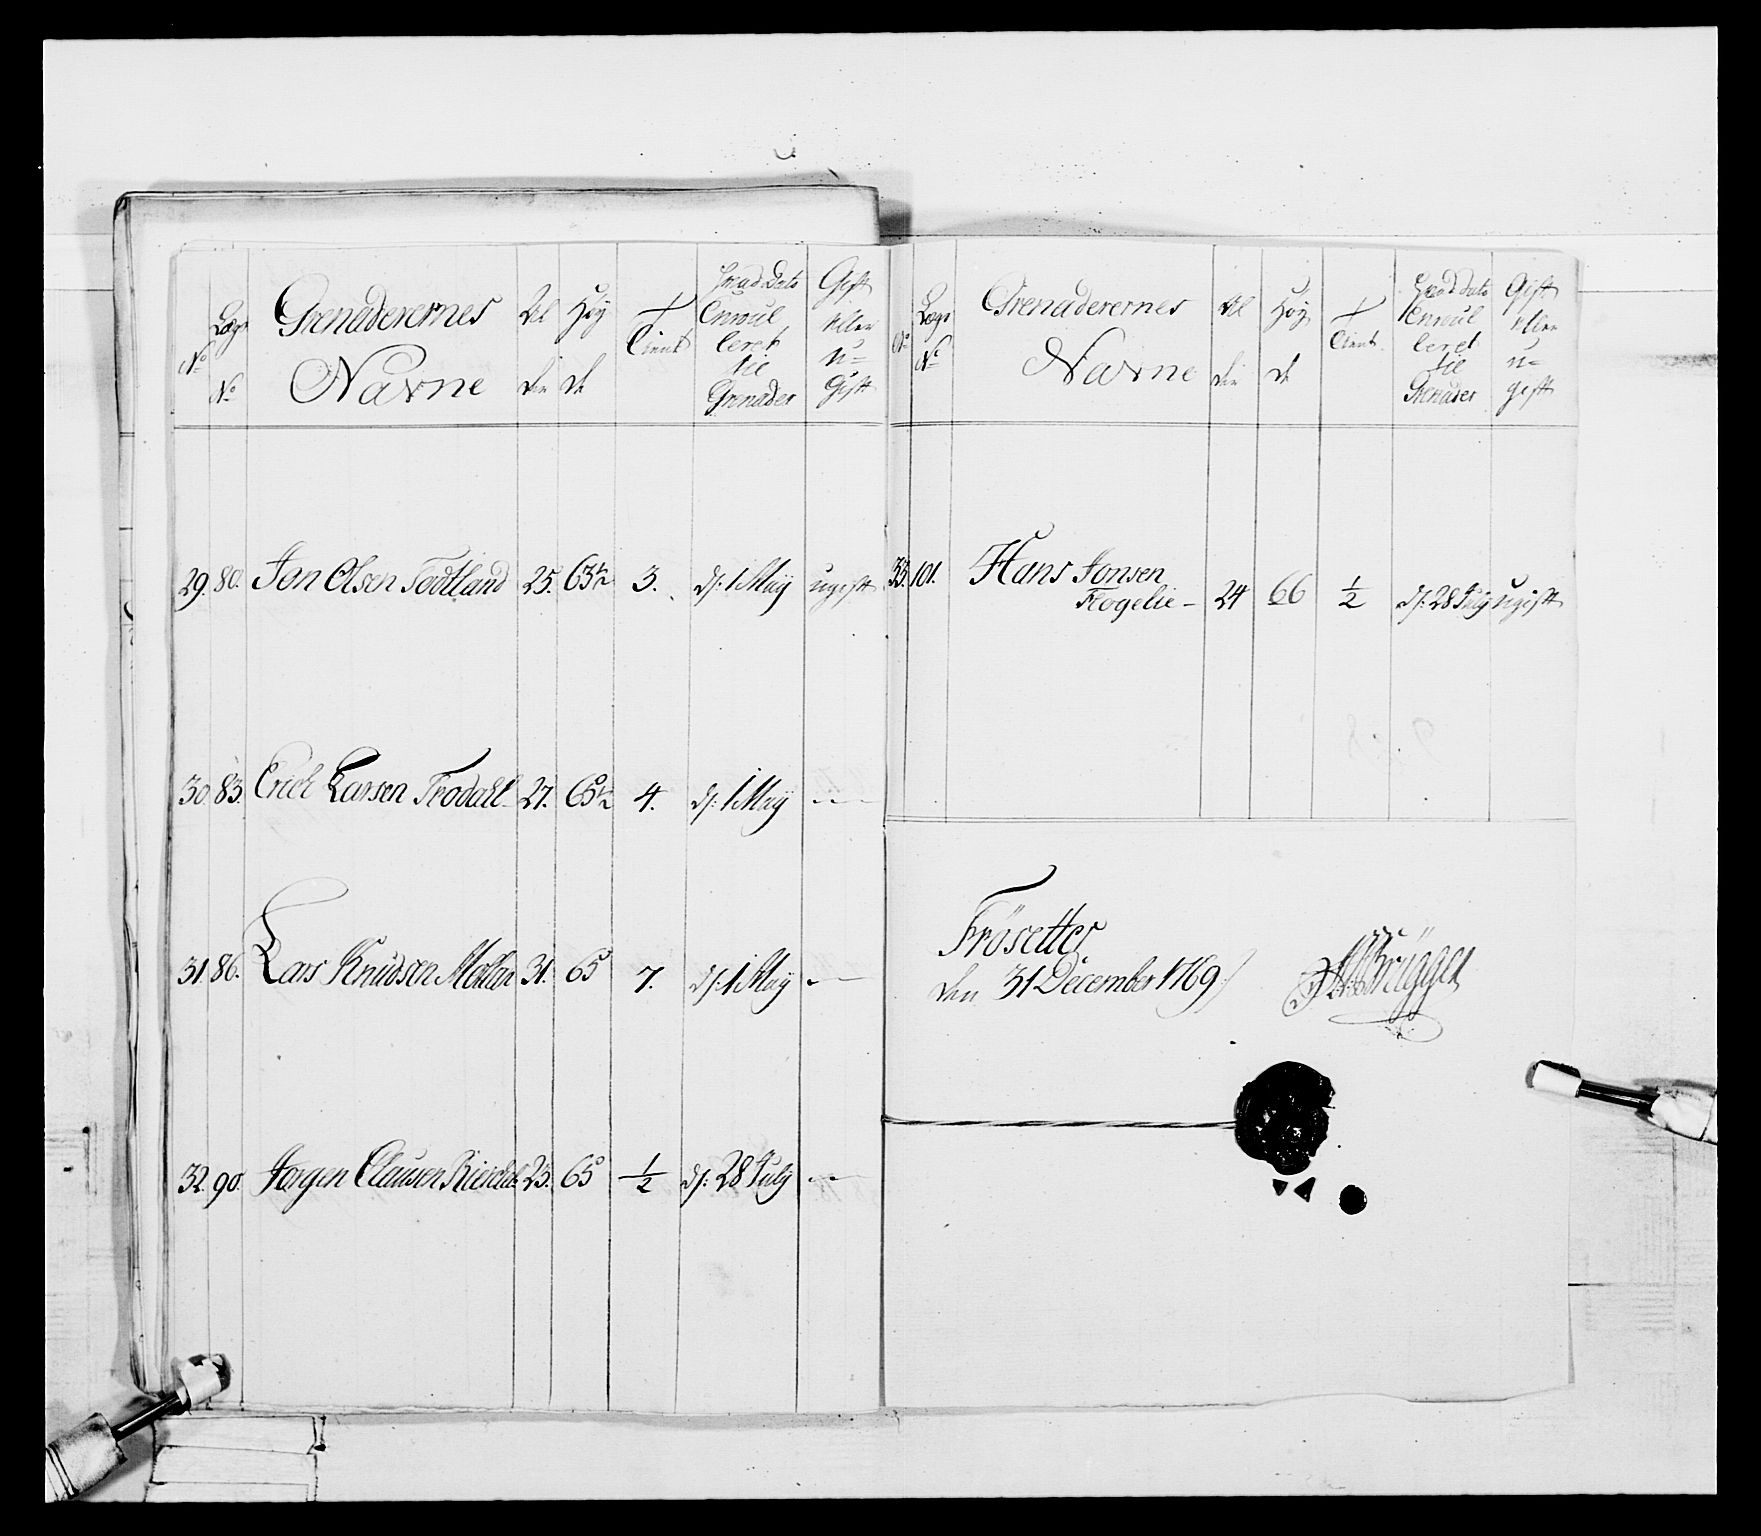 No Lægs No Grenaderernes Navne Al der Høy de Tient hvad dato Enroul leret til Grenader Gift eller u= Gift
29. 80. Jon Olsen Todtland 25. 63½ 3. d: 1 Maÿ ugift
30. 83. Erich Larsen Frodahl 27. 65½ 4. d: 1 Maÿ —
31. 86. Lars Knudsen 31. 65 7. d: 1 Maÿ —
32. 90. Jørgen Clausen 23. 65 ½ d: 28 Julÿ —
No Lægs No Grenaderernes Navne Al der Høy de Tient hvad dato Enroul leret til Grenader Gift eller u= gift
33. 101. Hans Jonsen
Flogelie – 24 66 ½ d: 28 Julÿ ugift
Frösetter
den 31 December 1769
Brügger